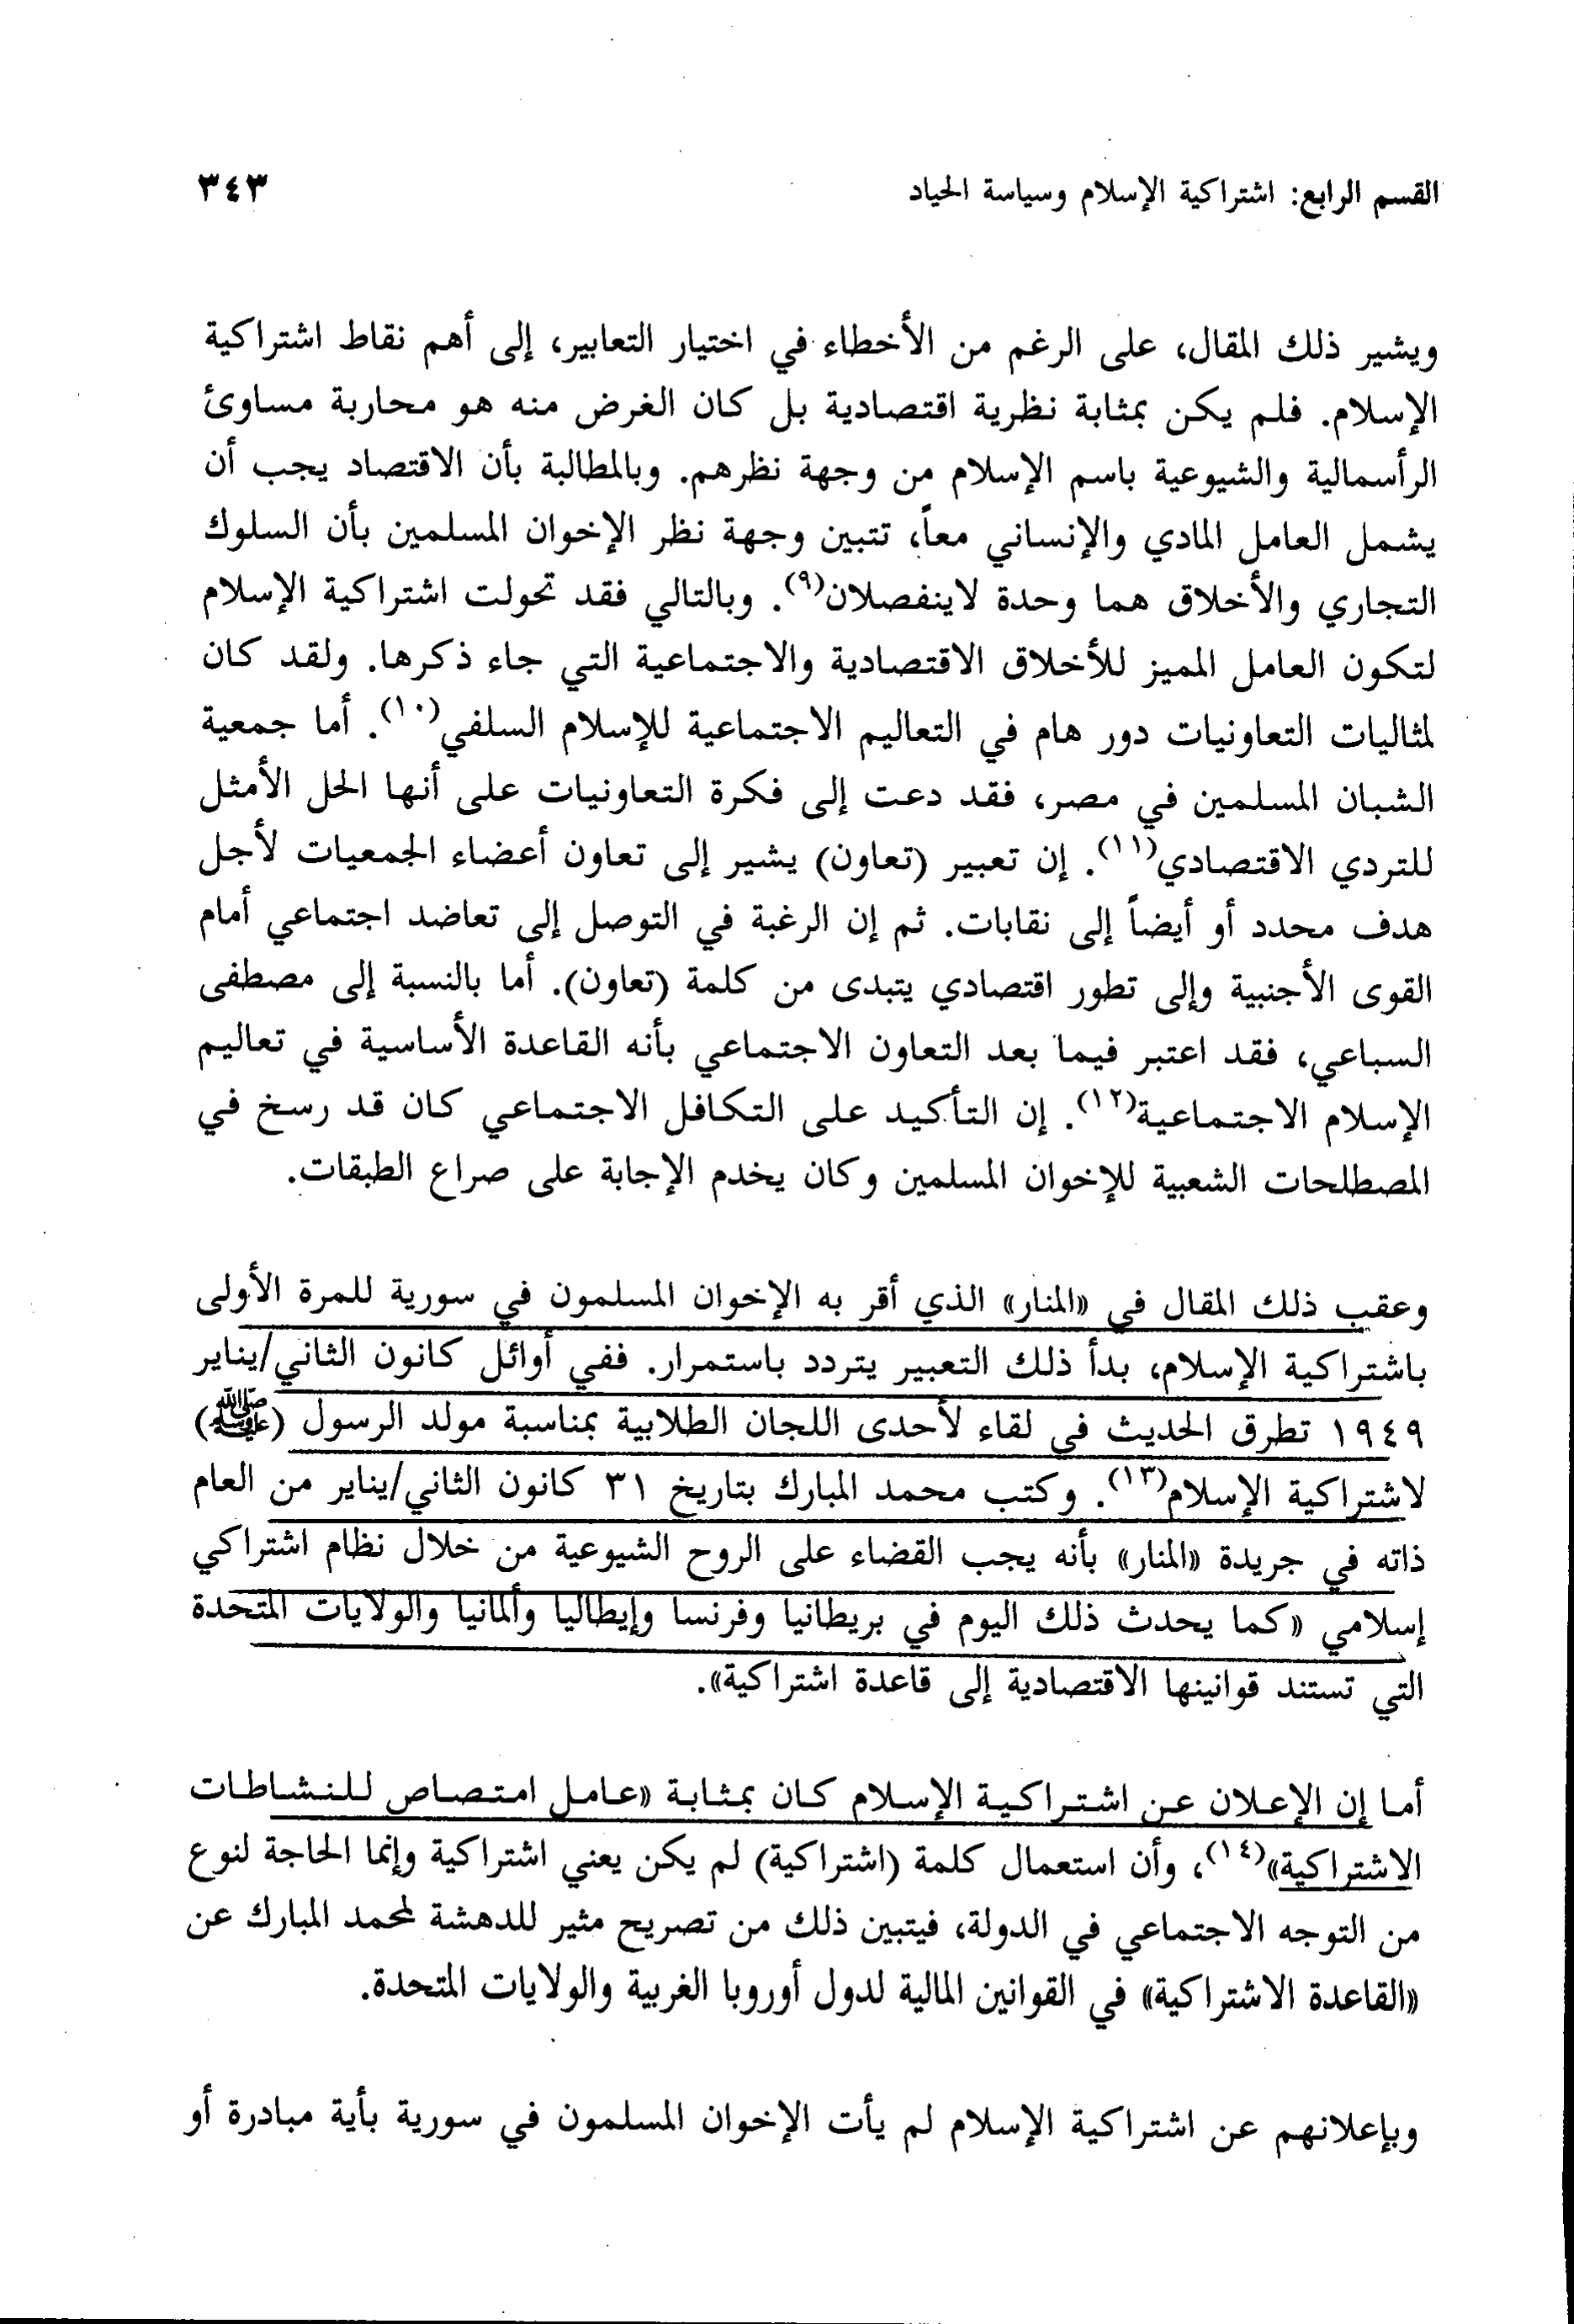 القسم الرابع: اشتراكية الإسلام وسياسة الحياد ٣٤٣
ويشير ذلك المقال، على الرغم من الأخطاء في اختيار التعابير، إلى أهم نقاط اشتراكية
الإسلام. فلم يكن بمثابة نظرية اقتصادية بل كان الغرض منه هو محاربة مساوئ
الرأسمالية والشيوعية باسم الإسلام من وجهة نظرهم. وبالمطالبة بأن الاقتصاد يجب أن
يشمل العامل المادي والإنساني معاً، تتبين وجهة نظر الإخوان المسلمين بأن السلوك
التجاري والأخلاق هما وحدة لاينفصلان(٩). وبالتالي فقد تحولت اشتراكية الإسلام
لتكون العامل المميز للأخلاق الاقتصادية والاجتماعية التي جاء ذكرها. ولقد كان
لمثاليات التعاونيات دور هام في التعاليم الاجتماعية للإسلام السلفي(١٠). أما جمعية
الشبان المسلمين في مصر، فقد دعت إلى فكرة التعاونيات على أنها الحل الأمثل
للتردي الاقتصادي(١١). إن تعبير (تعاون) يشير إلى تعاون أعضاء الجمعيات لأجل
هدف محدد أو أيضاً إلى نقابات. ثم إن الرغبة في التوصل إلى تعاضد اجتماعي أمام
القوى الأجنبية وإلى تطور اقتصادي يتبدى من كلمة (تعاون). أما بالنسبة إلى مصطفى
السباعي، فقد اعتبر فيما بعد التعاون الاجتماعي بأنه القاعدة الأساسية في تعاليم
الإسلام الاجتماعية(١٢). إن التأكيد على التكافل الاجتماعي كان قد رسخ في
المصطلحات الشعبية للإخوان المسلمين وكان يخدم الإجابة على صراع الطبقات.
وعقب ذلك المقال في «المنار» الذي أقر به الإخوان المسلمون في سورية للمرة الأولى
باشتراكية الإسلام، بدأ ذلك التعبير يتردد باستمرار. ففي أوائل كانون الثاني/يناير
١٩٤٩ تطرق الحديث في لقاء لأحدى اللجان الطلابية بمناسبة مولد الرسول (ﷺ)
لاشتراكية الإسلام(١٣). وكتب محمد المبارك بتاريخ ٣١ كانون الثاني/يناير من العام
ذاته في جريدة «المنار» بأنه يجب القضاء على الروح الشيوعية من خلال نظام اشتراكي
إسلامي «كما يحدث ذلك اليوم في بريطانيا وفرنسا وإيطاليا وألمانيا والولايات المتحدة
التي تستند قوانينها الاقتصادية إلى قاعدة اشتراكية».
أما إن الإعلان عن اشتراكية الإسلام كان بمثابة «عامل امتصاص للنشاطات
الاشتراكية»(١٤)، وأن استعمال كلمة (اشتراكية) لم يكن يعني اشتراكية وإنما الحاجة لنوع
من التوجه الاجتماعي في الدولة، فيتبين ذلك من تصريح مثير للدهشة لمحمد المبارك عن
«القاعدة الاشتراكية» في القوانين المالية لدول أوروبا الغربية والولايات المتحدة.
وبإعلانهم عن اشتراكية الإسلام لم يأت الإخوان المسلمون في سورية بأية مبادرة أو